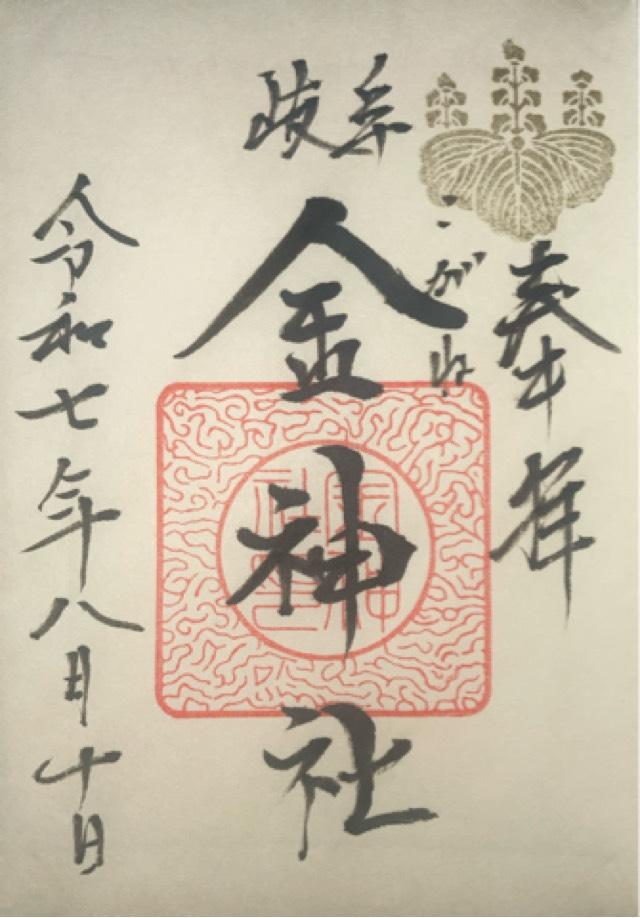 奉拝
岐阜
こがね
金神社
令和七年八月十日